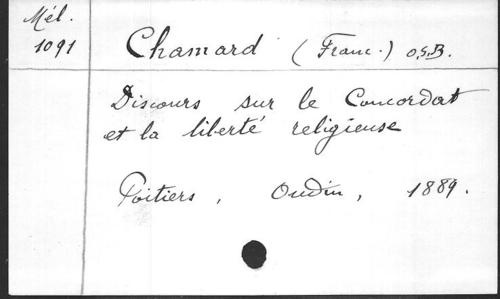 Mél.
1091
Chamard (Franc.) O.S.B.
Discours sur le Concordat
et la liberté religieuse
Poitiers, Oudin, 1889.